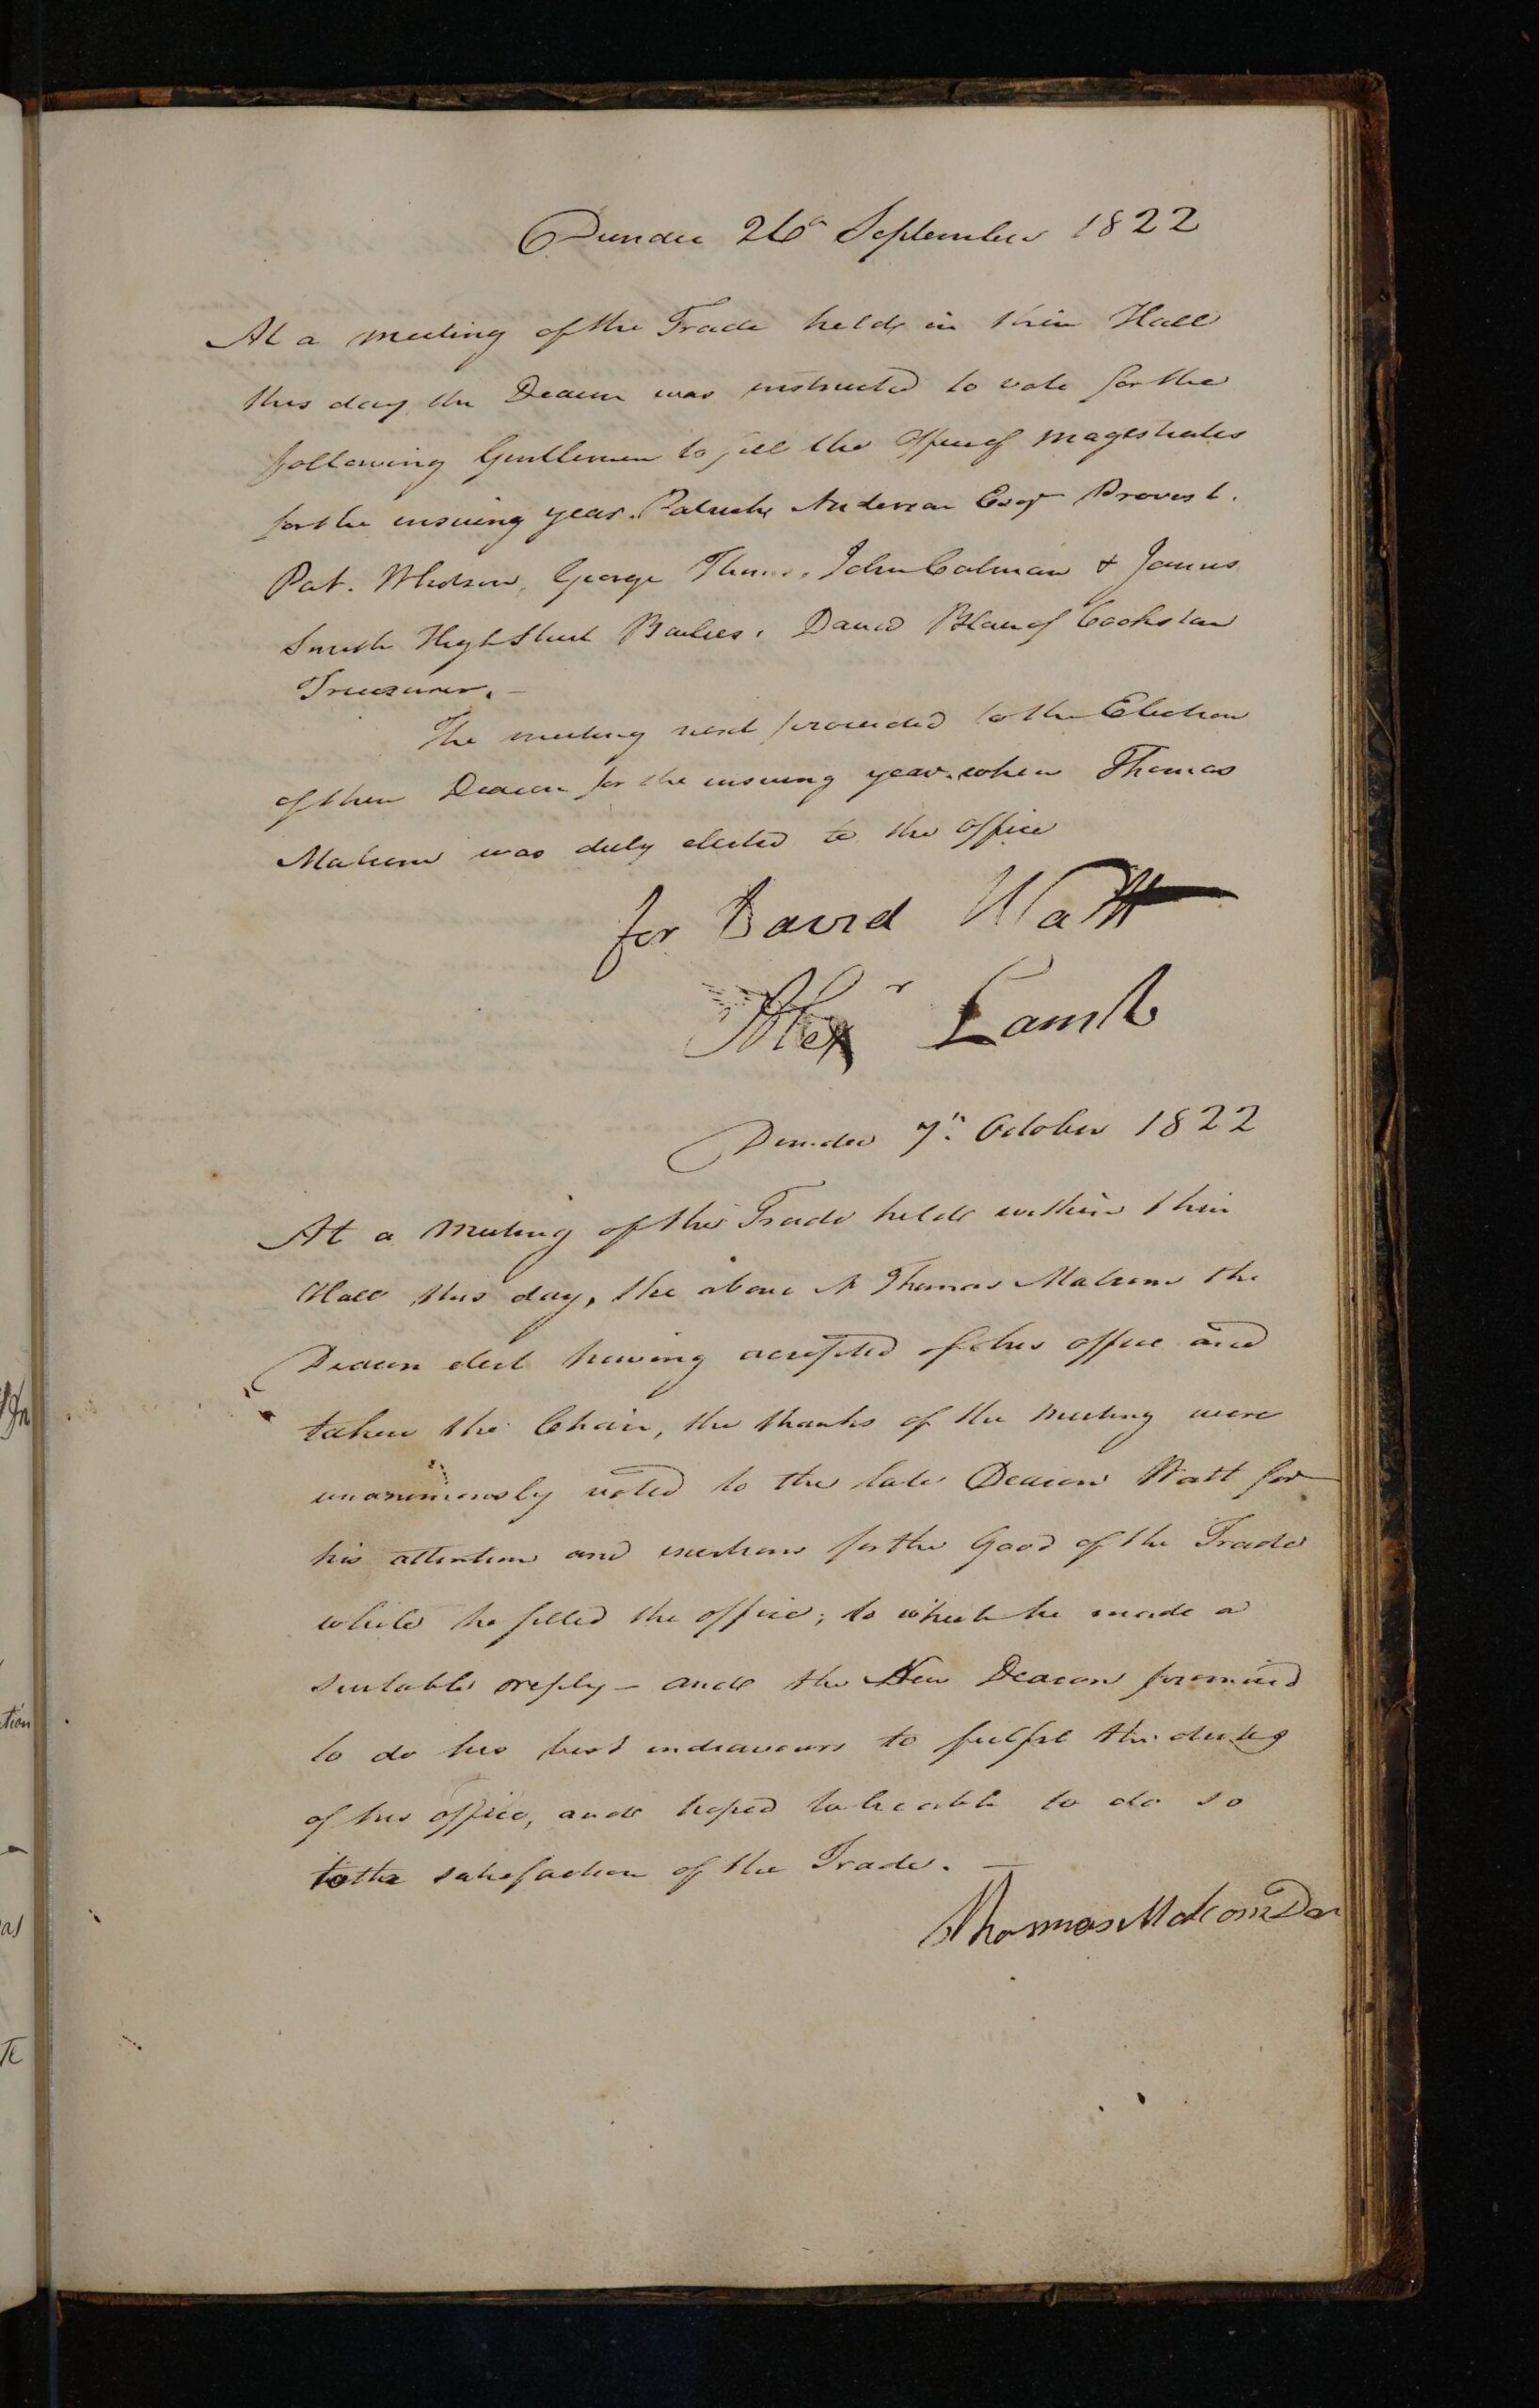 Dundee 26th September 1822
At a meeting of the Trade held in their Hall
this day the Deacon was instructed to vote for the
following Gentlemen to fill the office of Magestrates
for the insuing year. Patrick Anderson Esqr Provost.
Pat. Whitson, George Thoms, John Calman & James
Smith High Street Bailies. David Blair of Cookston
Treasurer. —
The meeting next proceeded to the Election
of their Deacon for the insuing year when Thomas
Malcom was duly elected to the office
for David Watt
Alexr Lamb
Dundee 7th October 1822
At a Meeting of the Trade held within their
Hall this day, the above Thomas Malcom the
Deacon elect having accepted of his office and
taken the Chair, the thanks of the meeting were
unanimously voted to the late Deacon Watt for
his attention and exertions for the Good of the Trade
while he filled the office; to which he made a
suitable reply — and the New Deacon promised
to do his best endeavours to fulfil the duties
of his office, and hoped to be able to do so
to the satisfaction of the Trade. —
Thomas Malcom Don
In
tion
as
Te